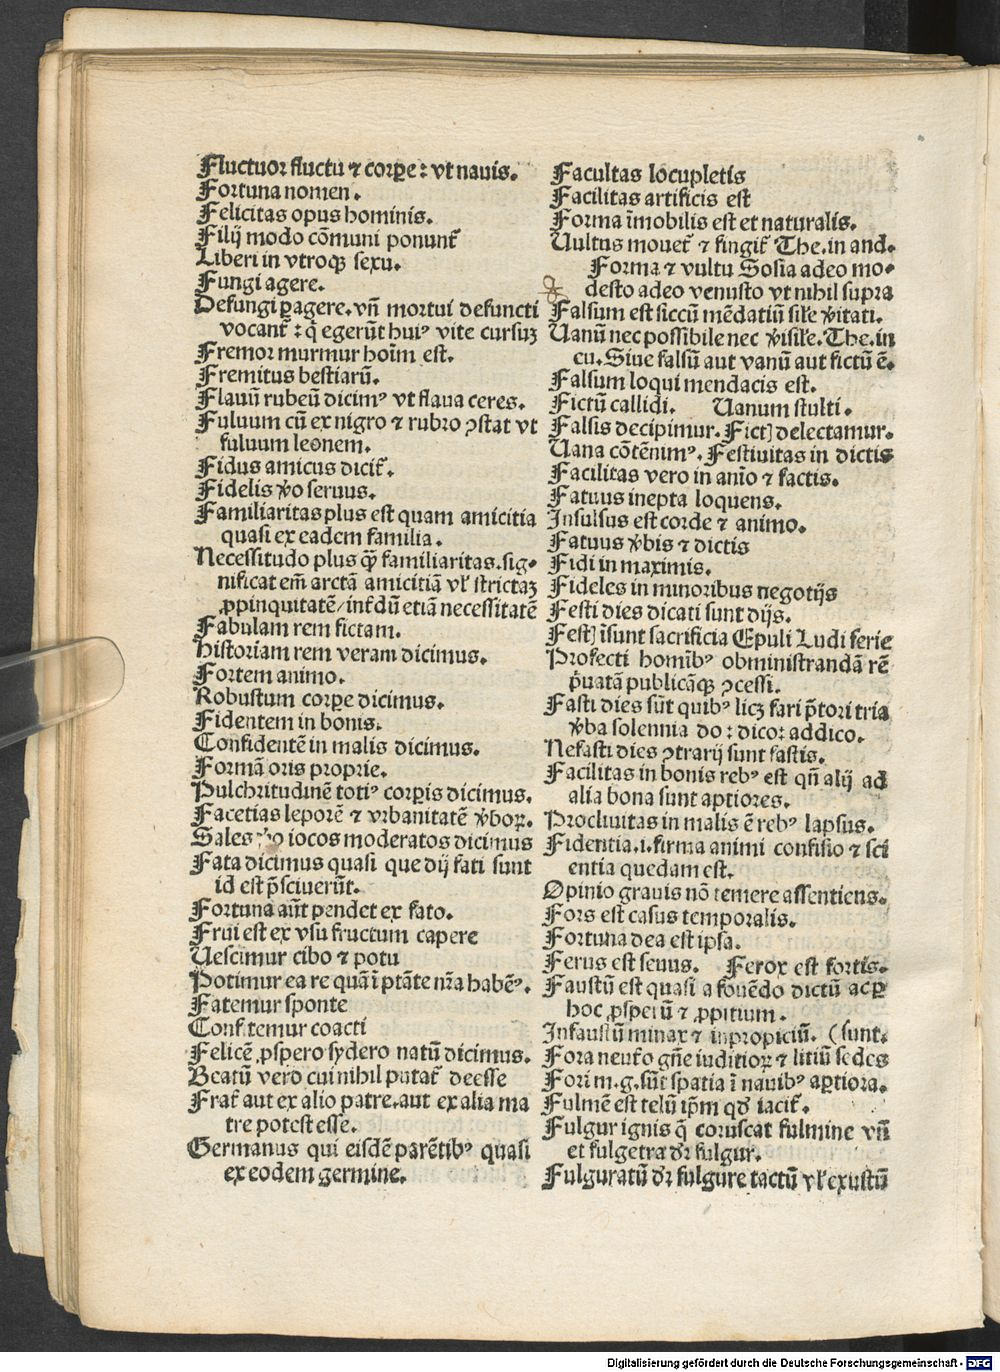 Fluctuor fluctu ⁊ corꝑe: vt nauis.
Fortuna nomen.
Felicitas opus hominis.
Filij modo cōmuni ponunt᷑
Liberi in vtroqꝫ sexu.
Fungi agere.
Defungi ꝑagere. vn̄ mortui defuncti
vocant᷑: q̇ egerūt huiꝰ vite cursuꝫ
Fremor murmur hoīm est.
Fremitus bestiarū.
Flauū rubeū dicimꝰ vt flaua ceres.
Fuluum cū ex nigro ⁊ rubro ꝯstat vt
fuluum leonem.
Fidus amicus dicit᷑.
Fidelis ꝟo seruus.
Familiaritas plus est quam amicitia
quasi ex eadem familia.
Necessitudo plus qꝫ̄ familiaritas. sig-
nificat em̄ arctā amicitiā vł strictaꝫ
ꝓpinquitatē/ int᷑dū etiā necessitatē
Fabulam rem fictam.
Historiam rem veram dicimus.
Fortem animo.
Robustum corꝑe dicimus.
Fidentem in bonis.
Confidentē in malis dicimus.
Formā oris proprie.
Pulchritudinē totiꝰ corꝑis dicimus.
Facetias leporē ⁊ vrbanitatē ꝟboꝝ.
Sales ꝟo iocos moderatos dicimus
Fata dicimus quasi que dij fati sunt
id est p̄sciuerūt.
Fortuna aūt pendet ex fato.
Frui est ex vsu fructum capere
Uescimur cibo ⁊ potu
Potimur ea re quā ī ptāte nr̄a habēꝰ.
Fatemur sponte
Confitemur coacti
Felicē ꝓspero sydero natū dicimus.
Beatū vero cui nihil putat᷑ deesse
Frat᷑ aut ex alio patre. aut ex alia ma
tre potest esse.
Germanus qui eisdē parētibꝰ quasi
ex eodem germine.
Facultas locupletis
Facilitas artificis est
Forma īmobilis est et naturalis.
Uultus mouet᷑ ⁊ fingit᷑ The. in and.
Forma ⁊ vultu Sosia adeo mo-
desto adeo venusto vt nihil supra
Falsum est siccū mēdatiū sil'e ꝟitati.
Uanū nec possibile nec ꝟisil'e. The. in
eu. Siue falsū aut vanū aut fictū ē.
Falsum loqui mendacis est.
Fictū callidi. Uanum stulti.
Falsis decipimur. Fictꝭ delectamur.
Uana cōtēnimꝰ. Festiuitas in dictis
Facilitas vero in aīo ⁊ factis.
Fatuus inepta loquens.
Insulsus est corde ⁊ animo.
Fatuus ꝟbis ⁊ dictis
Fidi in maximis.
Fideles in minoribus negotijs
Festi dies dicati sunt dijs.
Festꝭ īsunt sacrificia Epuli Ludi ferie
Profecti homībꝰ obministrandā rē
p̓uatā publicāqꝫ ꝯcessi.
Fasti dies sūt quibꝰ licꝫ fari p̄tori tria
ꝟba solennia do: dico: addico.
Nefasti dies ꝯtrarij sunt fastis.
Facilitas in bonis rebꝰ est qn̄ alij ad
alia bona sunt aptiores.
Procliuitas in malis ē rebꝰ lapsus.
Fidentia .i. firma animi confisio ⁊ sci
entia quedam est.
Opinio grauis nō temere assentiens.
Fors est casus temporalis.
Fortuna dea est ipsa.
Ferus est seuus. Ferox est fortis.
Faustū est quasi a fouēdo dictū ac ꝑ
hoc ꝓsperū ⁊ ꝓpitium.
Infaustū minax ⁊ inpropiciū. (sunt.
Fora neut᷑o gn̄e iuditioꝝ ⁊ litiū sedes
Fori m. g. sūt spatia ī nauibꝰ aꝑtiora.
Fulmē est telū ip̄m qd̓ iacit᷑.
Fulgur ignis q̇ coruscat fulmine vn̄
et fulgetra dꝛ fulgur.
Fulguratū dꝛ fulgure tactū vł exustū
Digitalisierung gefördert durch die Deutsche Forschungsgemeinschaft - DFG